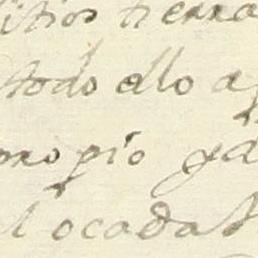 itios tierra
todo ello a
propio y d
l ocada